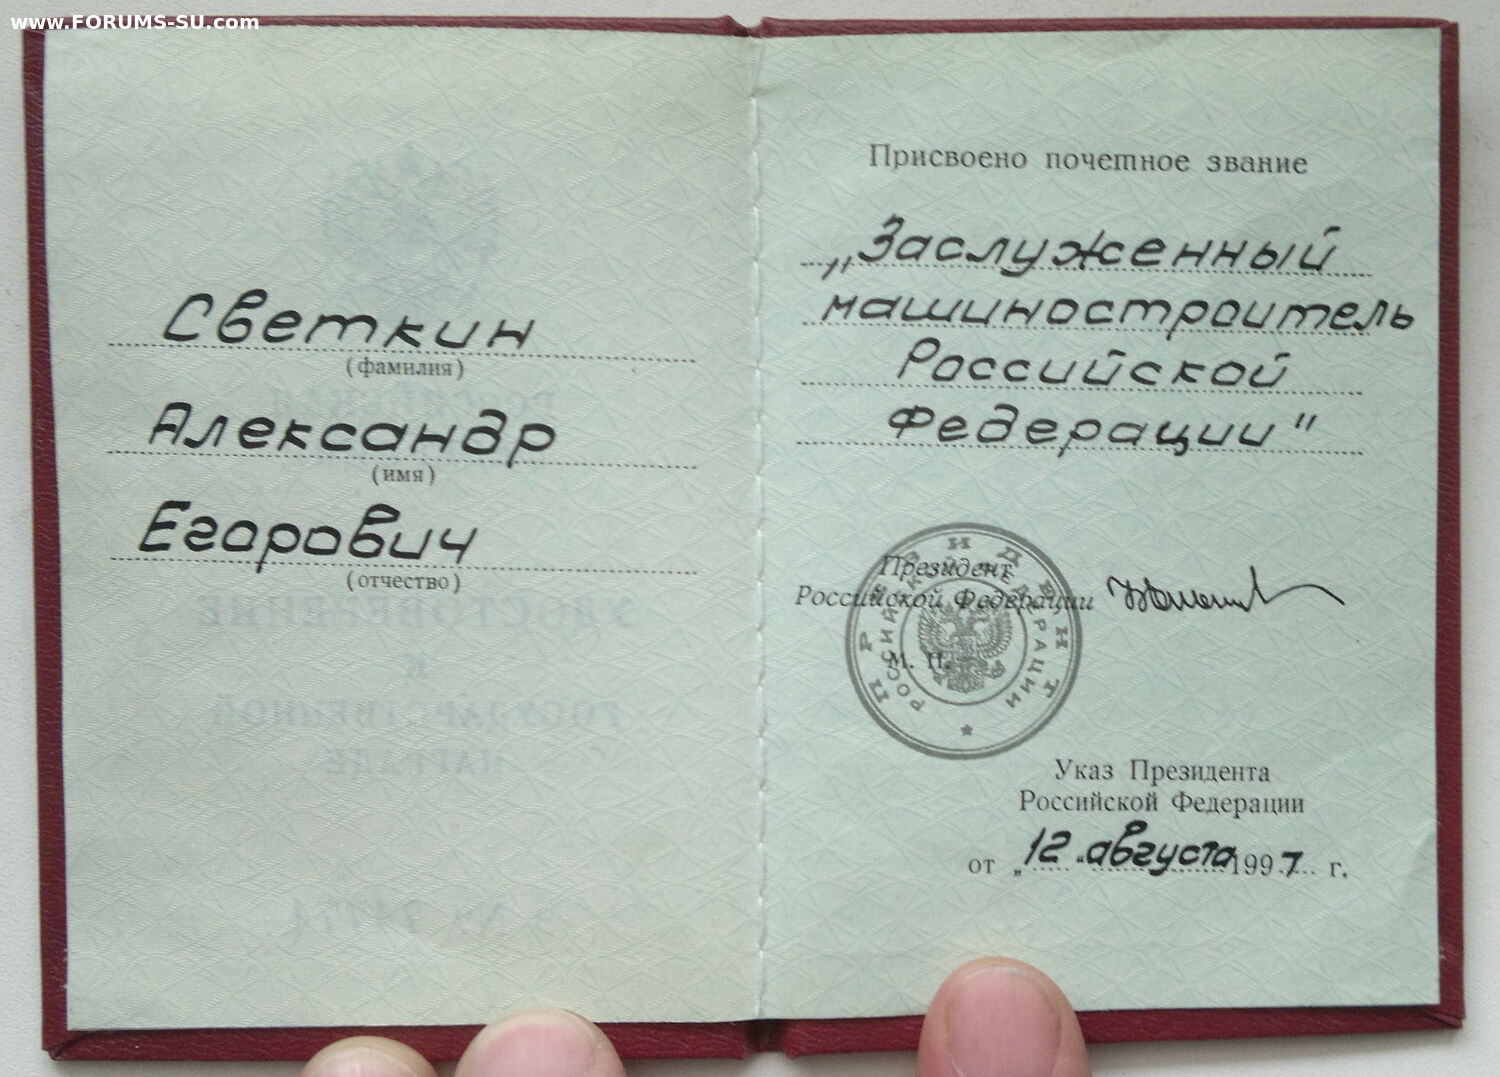 www.FORUMS-SU.com
Светкин
(фамилия)
Александр
(имя)
Егорович
(отчество)
Присвоено почетное звание
„Заслуженный
машиностроитель
Российской
Федерации"
Президент
Российской Федерации
М. П.
ПРЕЗИДЕНТ
РОССИЙСКОЙ ФЕДЕРАЦИИ
Указ Президента
Российской Федерации
от „12“ августа 1997 г.